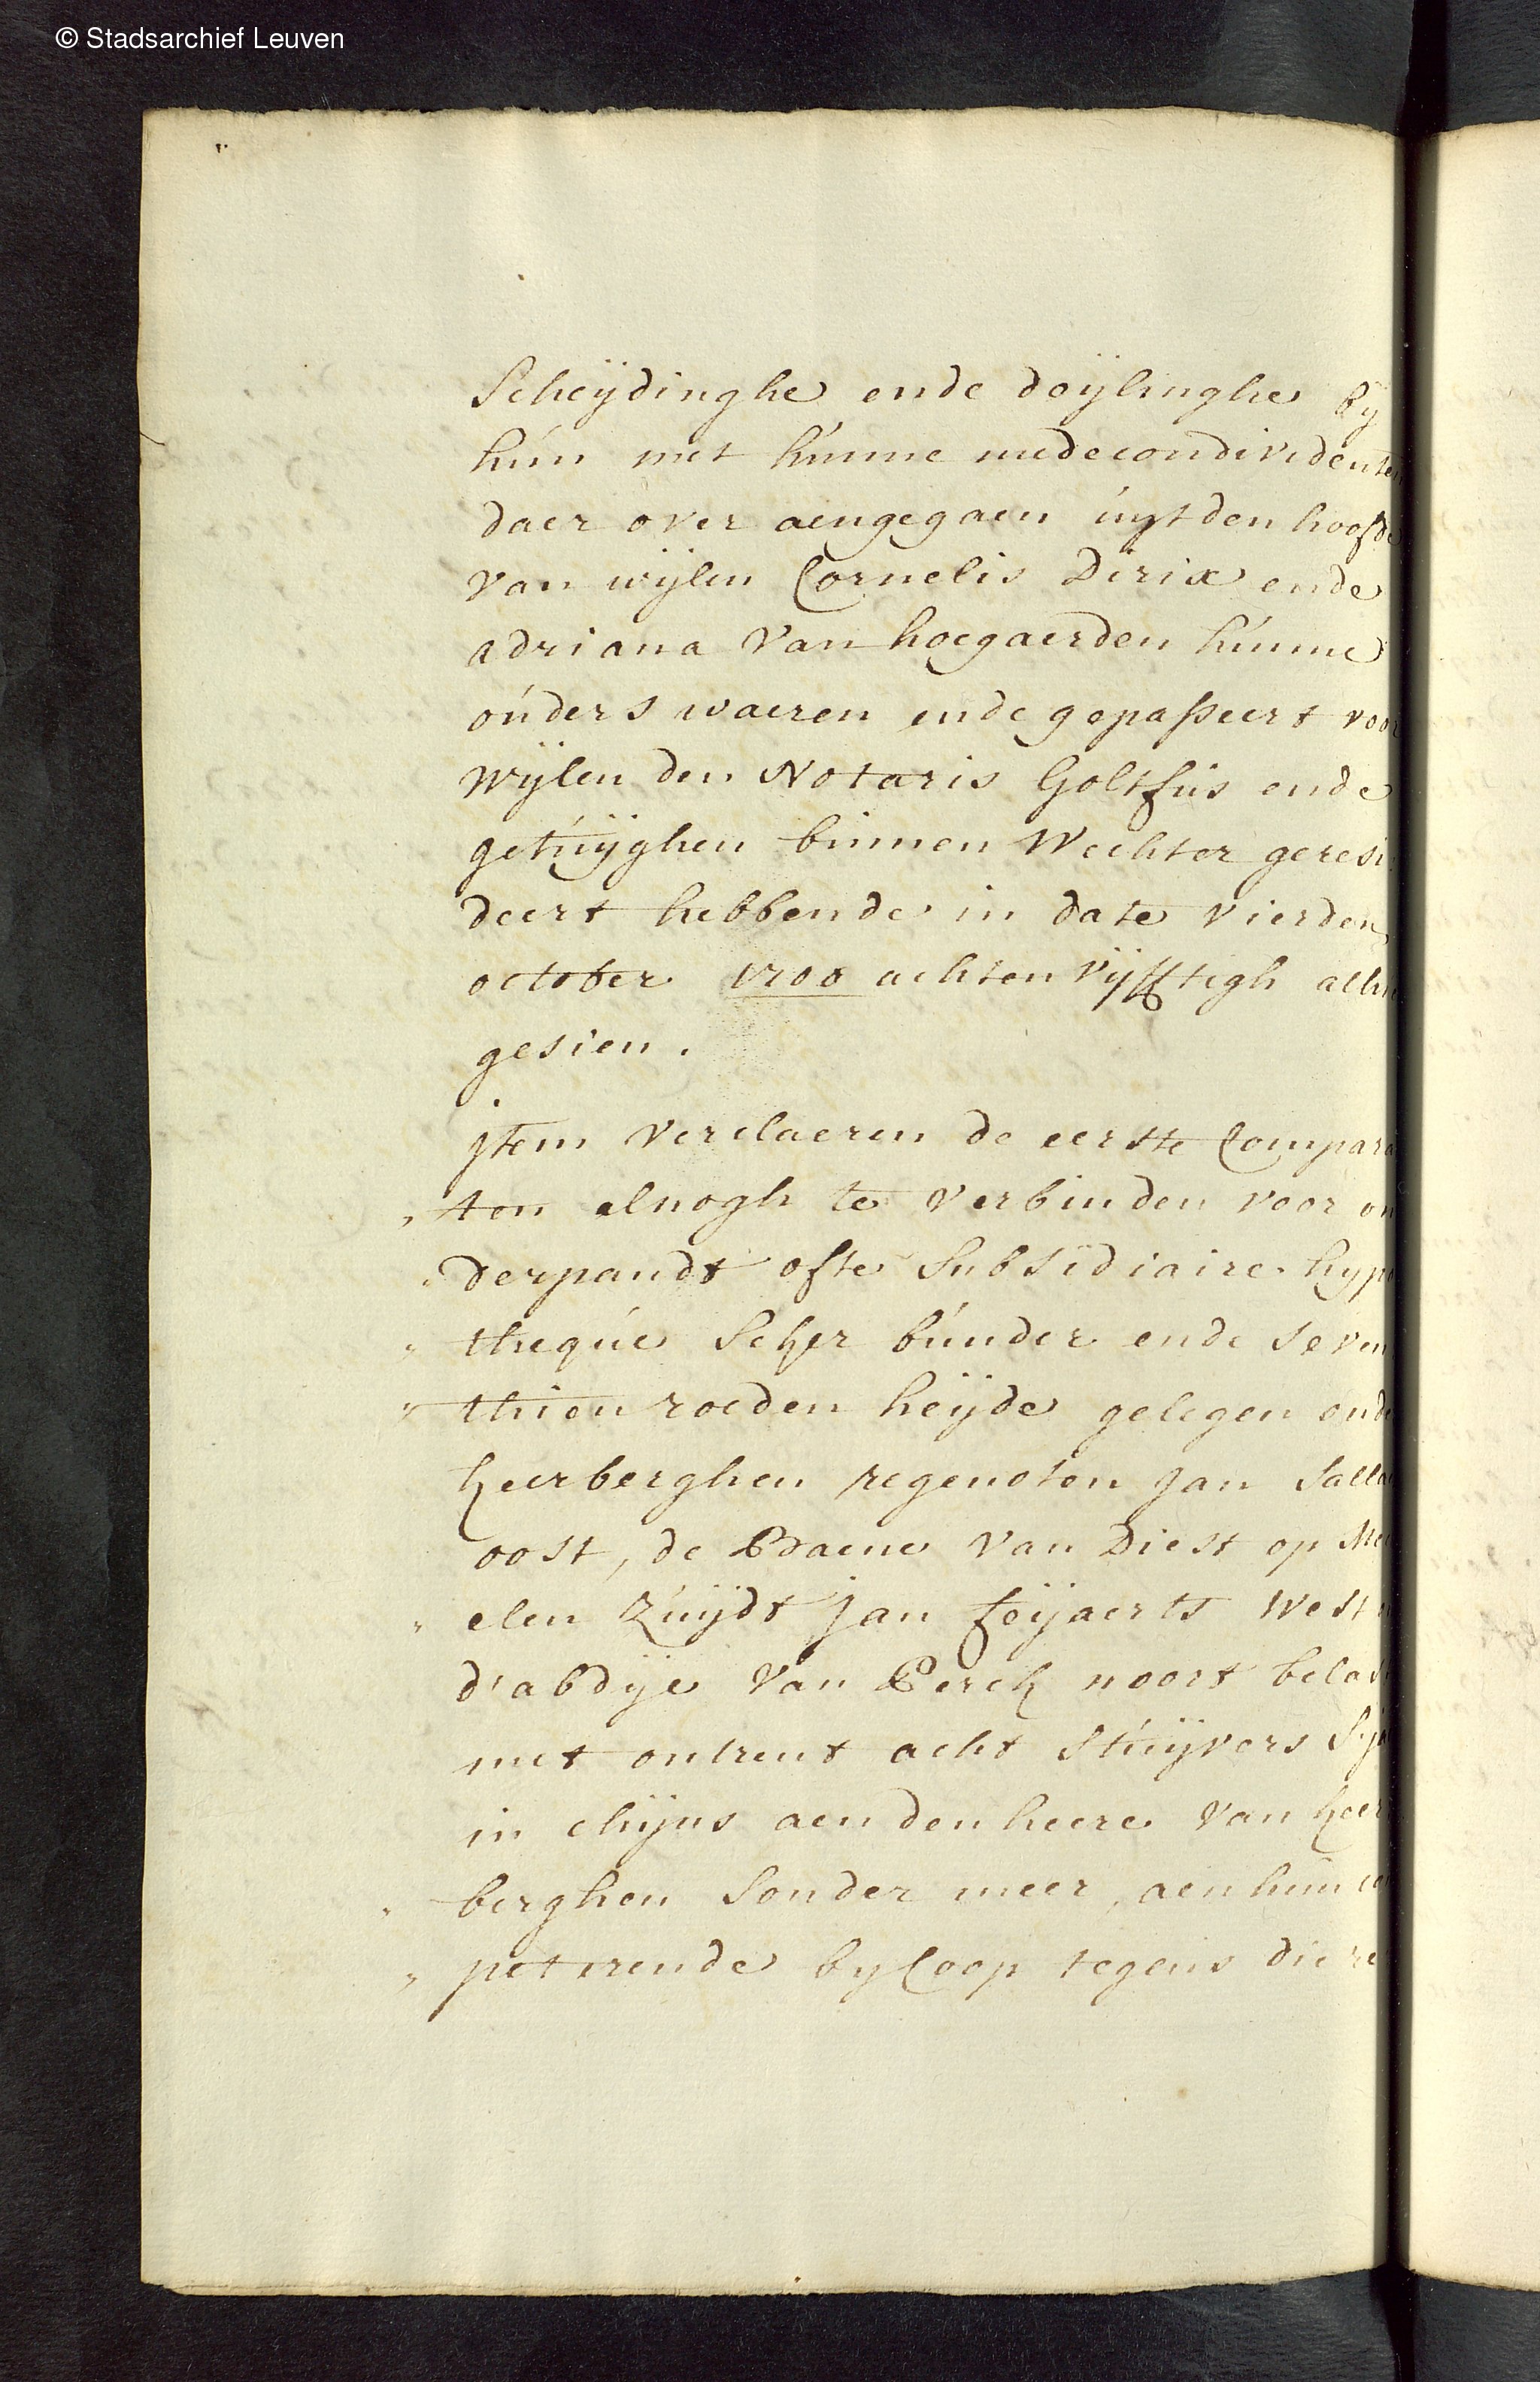 © Stadsarchief Leuven
Scheijdinghe ende deijlinghe bij
hún met húnne medecondividenten
daer over aengegaen úijt den hoofde
van wijlen Cornelis Dirix ende
adriana van hoegaerden húnne
oúders waeren ende gepasseert voor
wijlen den Notaris Goltfus ende
getúijghen binnen Wechter geresi
deert hebbende in date vierden
october 1700 achtenvijfftigh alhi
gesien.
jtem verclaeren de eerste Compara
ten alnogh te verbinden voor on
derpandt ofte Subsidiaire hypo
theqúe Seker búnder ende seven
thien roeden heijde gelegen onde
heerberghen regenoten jan Salla
oost, de Baene van Diest op Me
elen Zúijdt jan feijaerts west
d'abdije van Perck noort belast
met ontrent acht Stúijvers S'ja
in chijns aen den heere van heer
berghen Sonder meer, aen hún co
peterende by Coop tegens die re